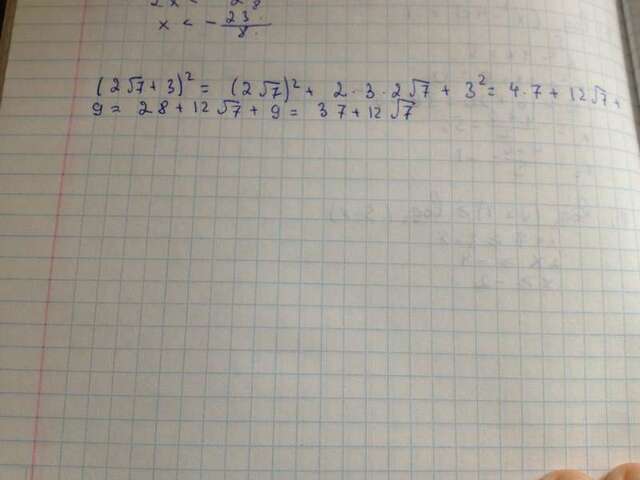 x < - 23/8
(2√7 + 3)² = (2√7)² + 2·3·2√7 + 3² = 4·7 + 12√7 +
9 = 28 + 12√7 + 9 = 37 + 12√7